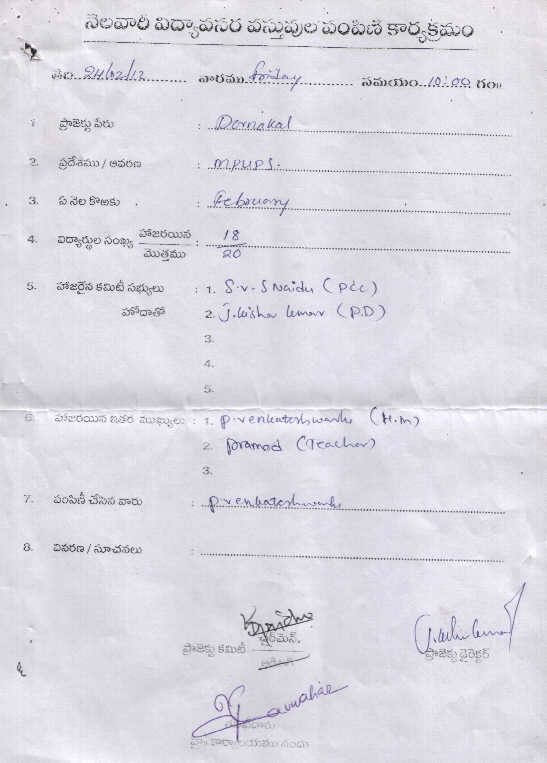 నెలవారి విద్యావసర వస్తువుల పంపిణి కార్యక్రమం
తేది 24/02/12 వారము Friday సమయం 10:00 గం॥
1 ప్రాజెక్టు పేరు : Dornakal
2. ప్రదేశము / ఆవరణ : MPUPS.
3. ఏ నెల కొఱకు : February
4. విద్యార్థుల సంఖ్య హాజరయిన : 18
మొత్తము 20
5. హాజరైన కమిటీ సభ్యులు : 1. S.V.S Naidu (PCC)
హోదాతో 2. J. Kishor Kumar (P.D)
3.
4.
5.
6. హాజరయిన ఇతర ముఖ్యులు : 1. P. Venkateshwarlu (H.M)
2. Pramod (Teacher)
3.
7. పంపిణీ చేసిన వారు : P. Venkateshwarlu
8. వివరణ / సూచనలు :
ఛైర్మెన్.
ప్రాజెక్టు కమిటీ
ప్రాజెక్టు డైరెక్టర్